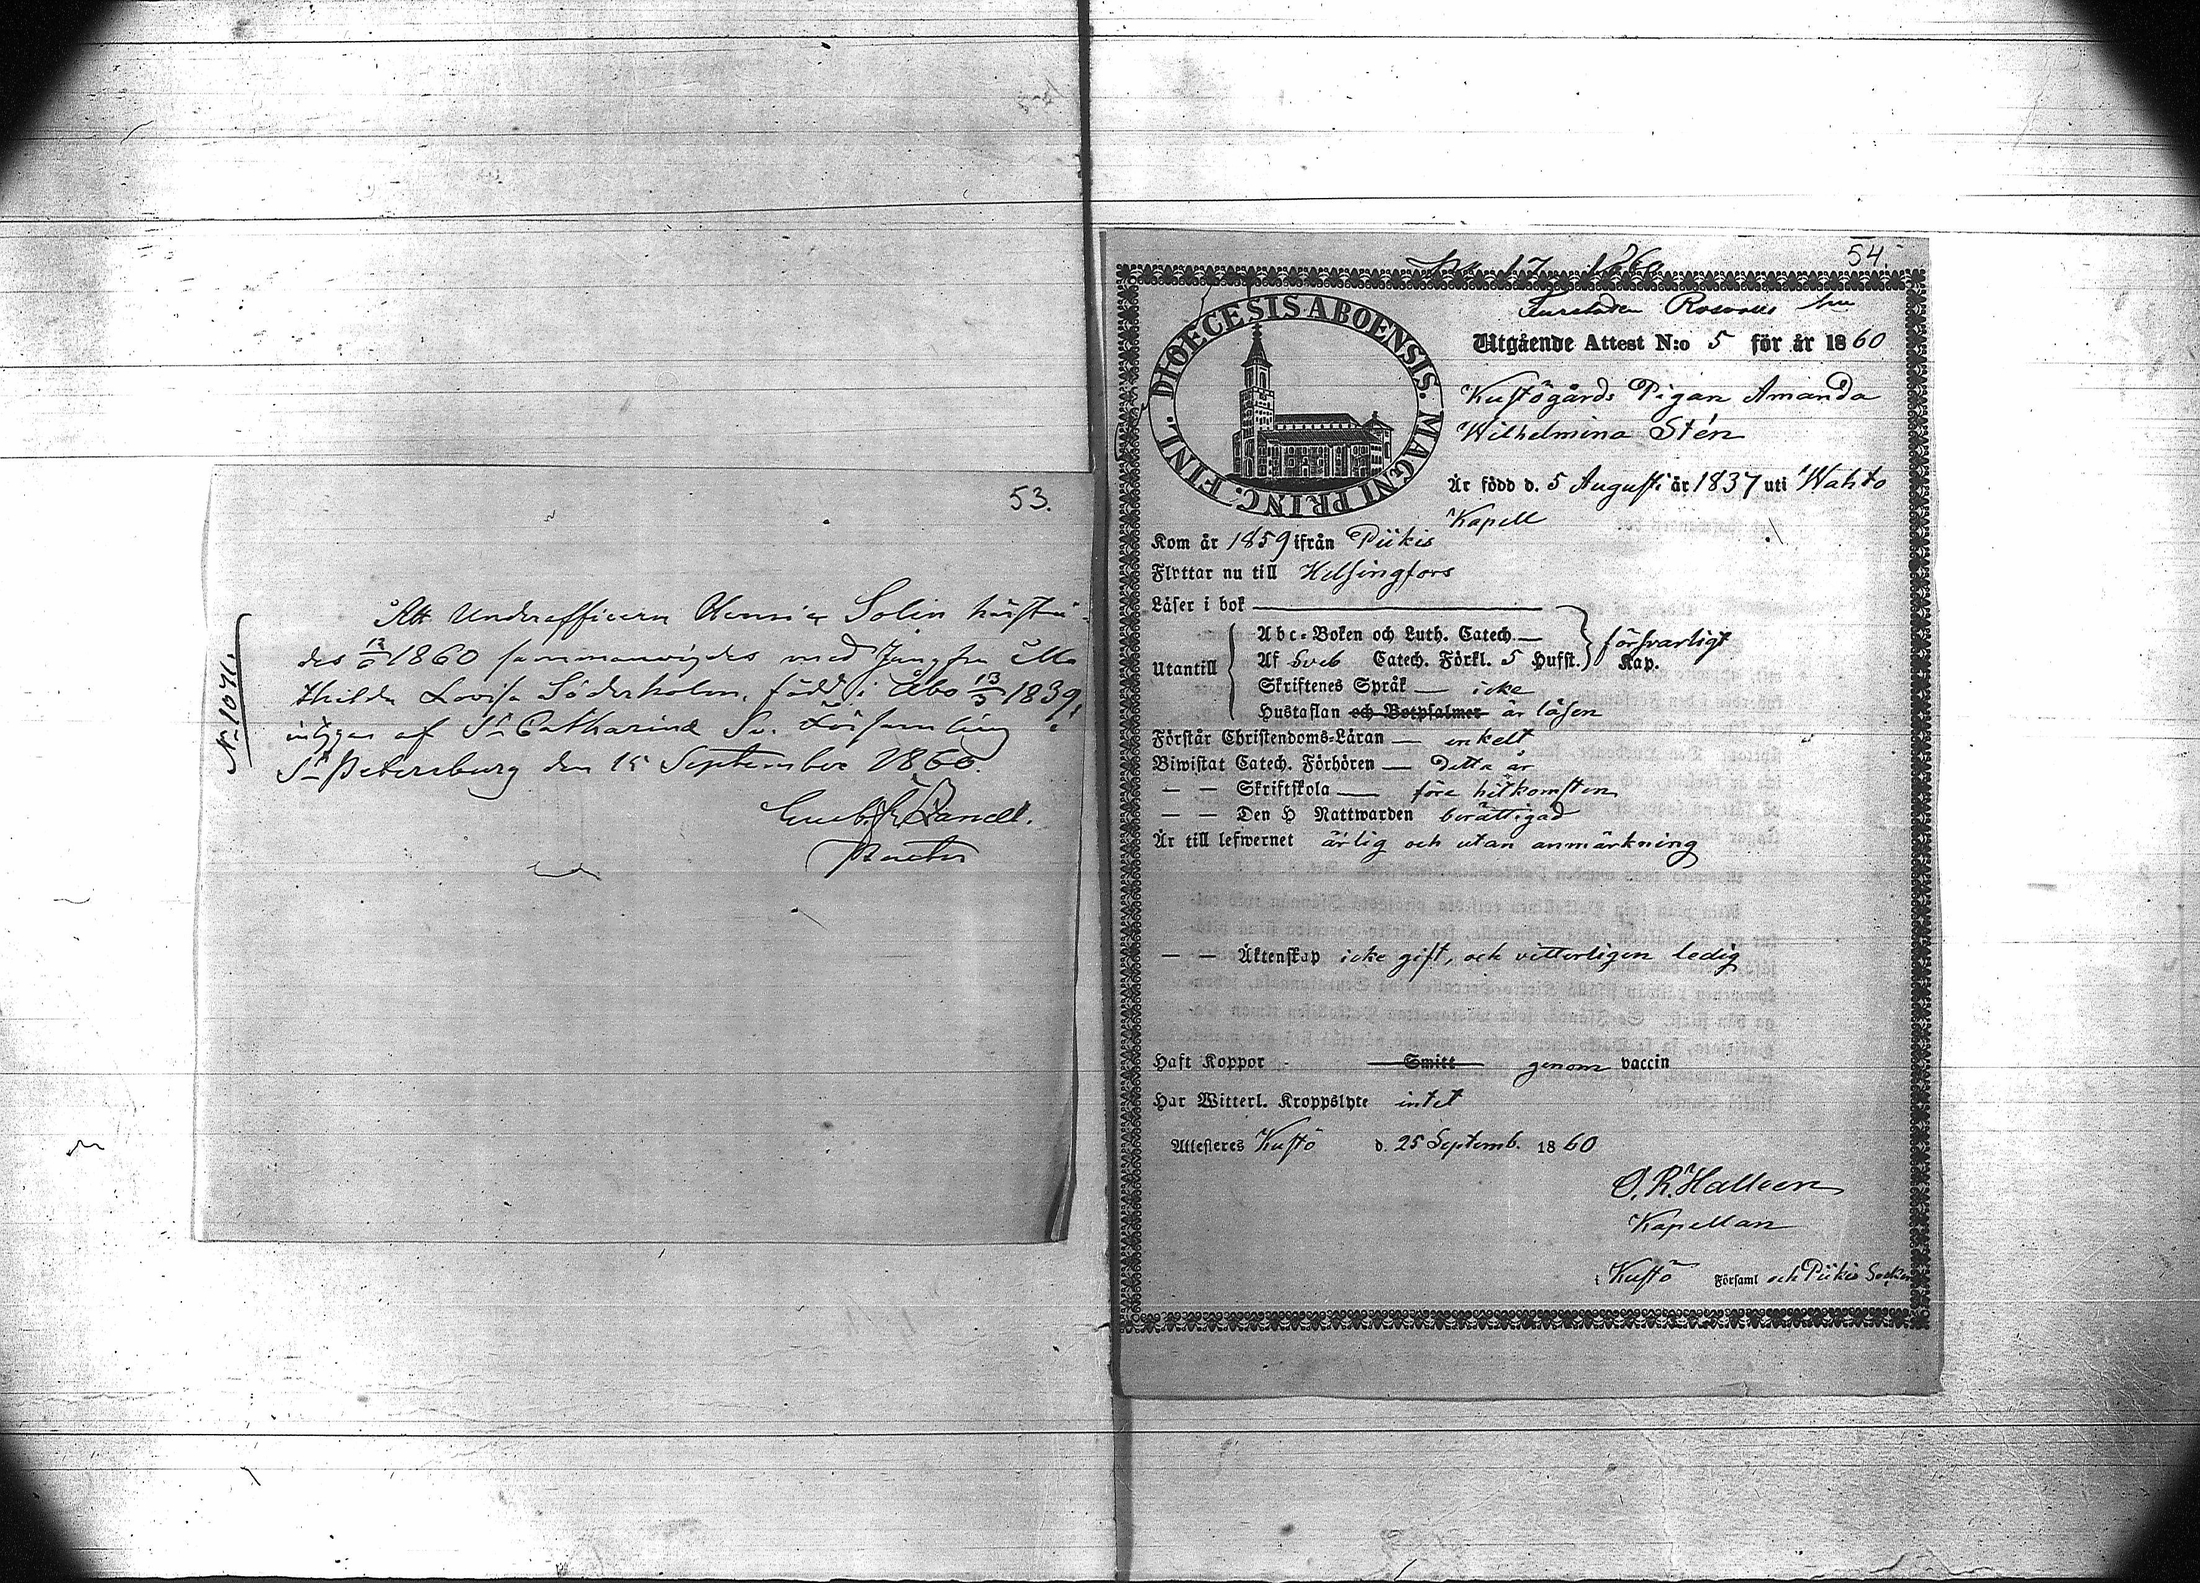 53.
No 1071.
Att Underofficern Henric Solin härstä-
des 13/5 1860 sammanvigdes med Jungfru Ma
thilda Lovisa Söderholm, född i Åbo 13/3 1839,
intygar af St Catharinæ Sv. Församling i
St Petersburg den 15 September 1860.
Pastor
54.
No 17 1860
Utgående Attest N:o 5 för år 1860
DIOECESIS ABOENSIS. MAGNI PRINC. FINL.
Kustögårds Pigan Amanda
Wilhelmina Stén
Är född d. 5 Augusti år 1837 uti Wahto
Kapell
Kom år 1859 ifrån Piikis
Flyttar nu till Helsingfors
Läser i bok
Utantill
Abc-Boken och Luth. Catech. försvarligt
Af Sveb Catech. Förkl. 5 Hufst. Kap.
Skriftenes Språk icke
Hustaflan och Botpsalmer är läsen
Förstår Christendoms-Läran enkelt
Biwistat Catech. Förhören detta år
— — Skriftskola före hitkomsten
— — Den H Nattwarden berättigad
Är till lefwernet ärlig och utan anmärkning
— — Äktenskap icke gift, och vitterligen ledig
Haft Koppor Smitt genom vaccin
Har Witterl. Kroppslyte intet
Attesteres Kustö d. 25 Septemb. 1860
O. R. Halleen
Kapellan
i Kustö Församl och Piikis Socken